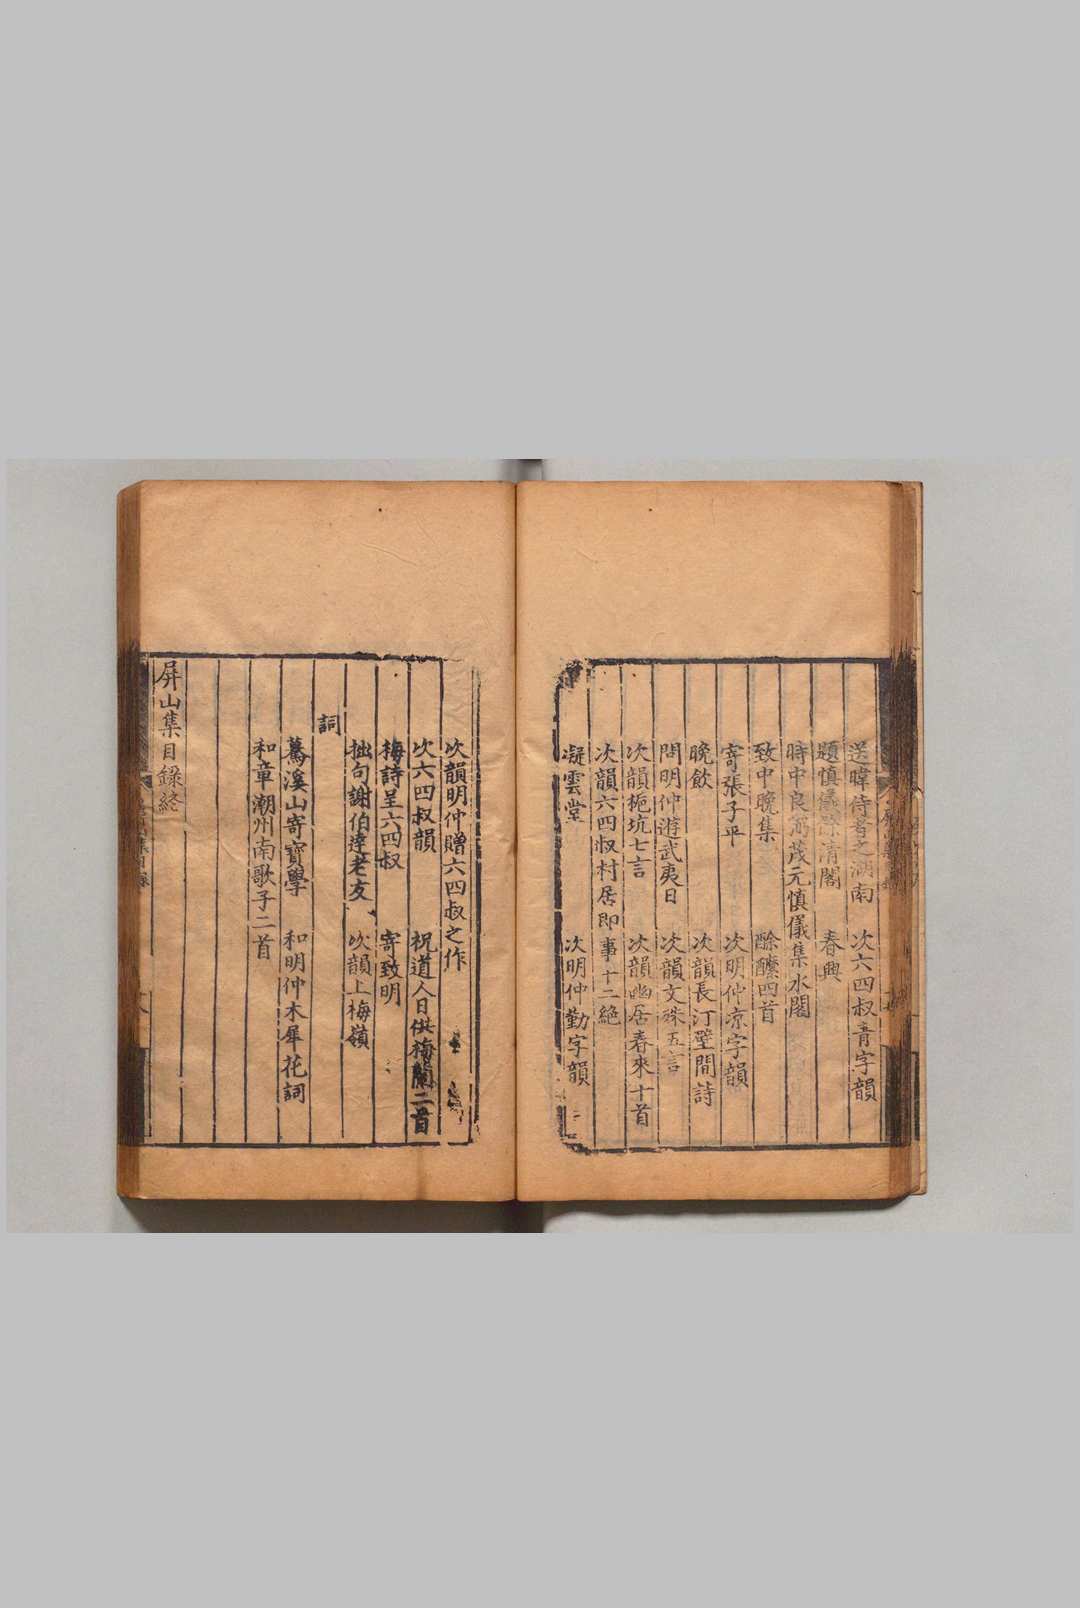 送暐侍者之湖南　次六四叔青字韻
題慎儀除清閣　春興
時中良弼茂元慎儀集水閣
致中晚集　酴醿四首
寄張子平　次明仲凉字韻
晚飲　次韻長汀壁間詩
問明仲遊武夷日　次韻文殊五言
次韻栀坑七言　次韻幽居春來十首
次韻六四叔村居即事十二絶
凝雲堂　次明仲勤字韻
次韻明仲贈六四叔之作
次六四叔韻　祝道人日供梅蘭二首
梅詩呈六四叔　寄致明
拙句謝伯達老友　次韻上梅嶺
詞
驀溪山寄寶學　和明仲木犀花詞
和章潮州南歌子二首
屏山集目録終